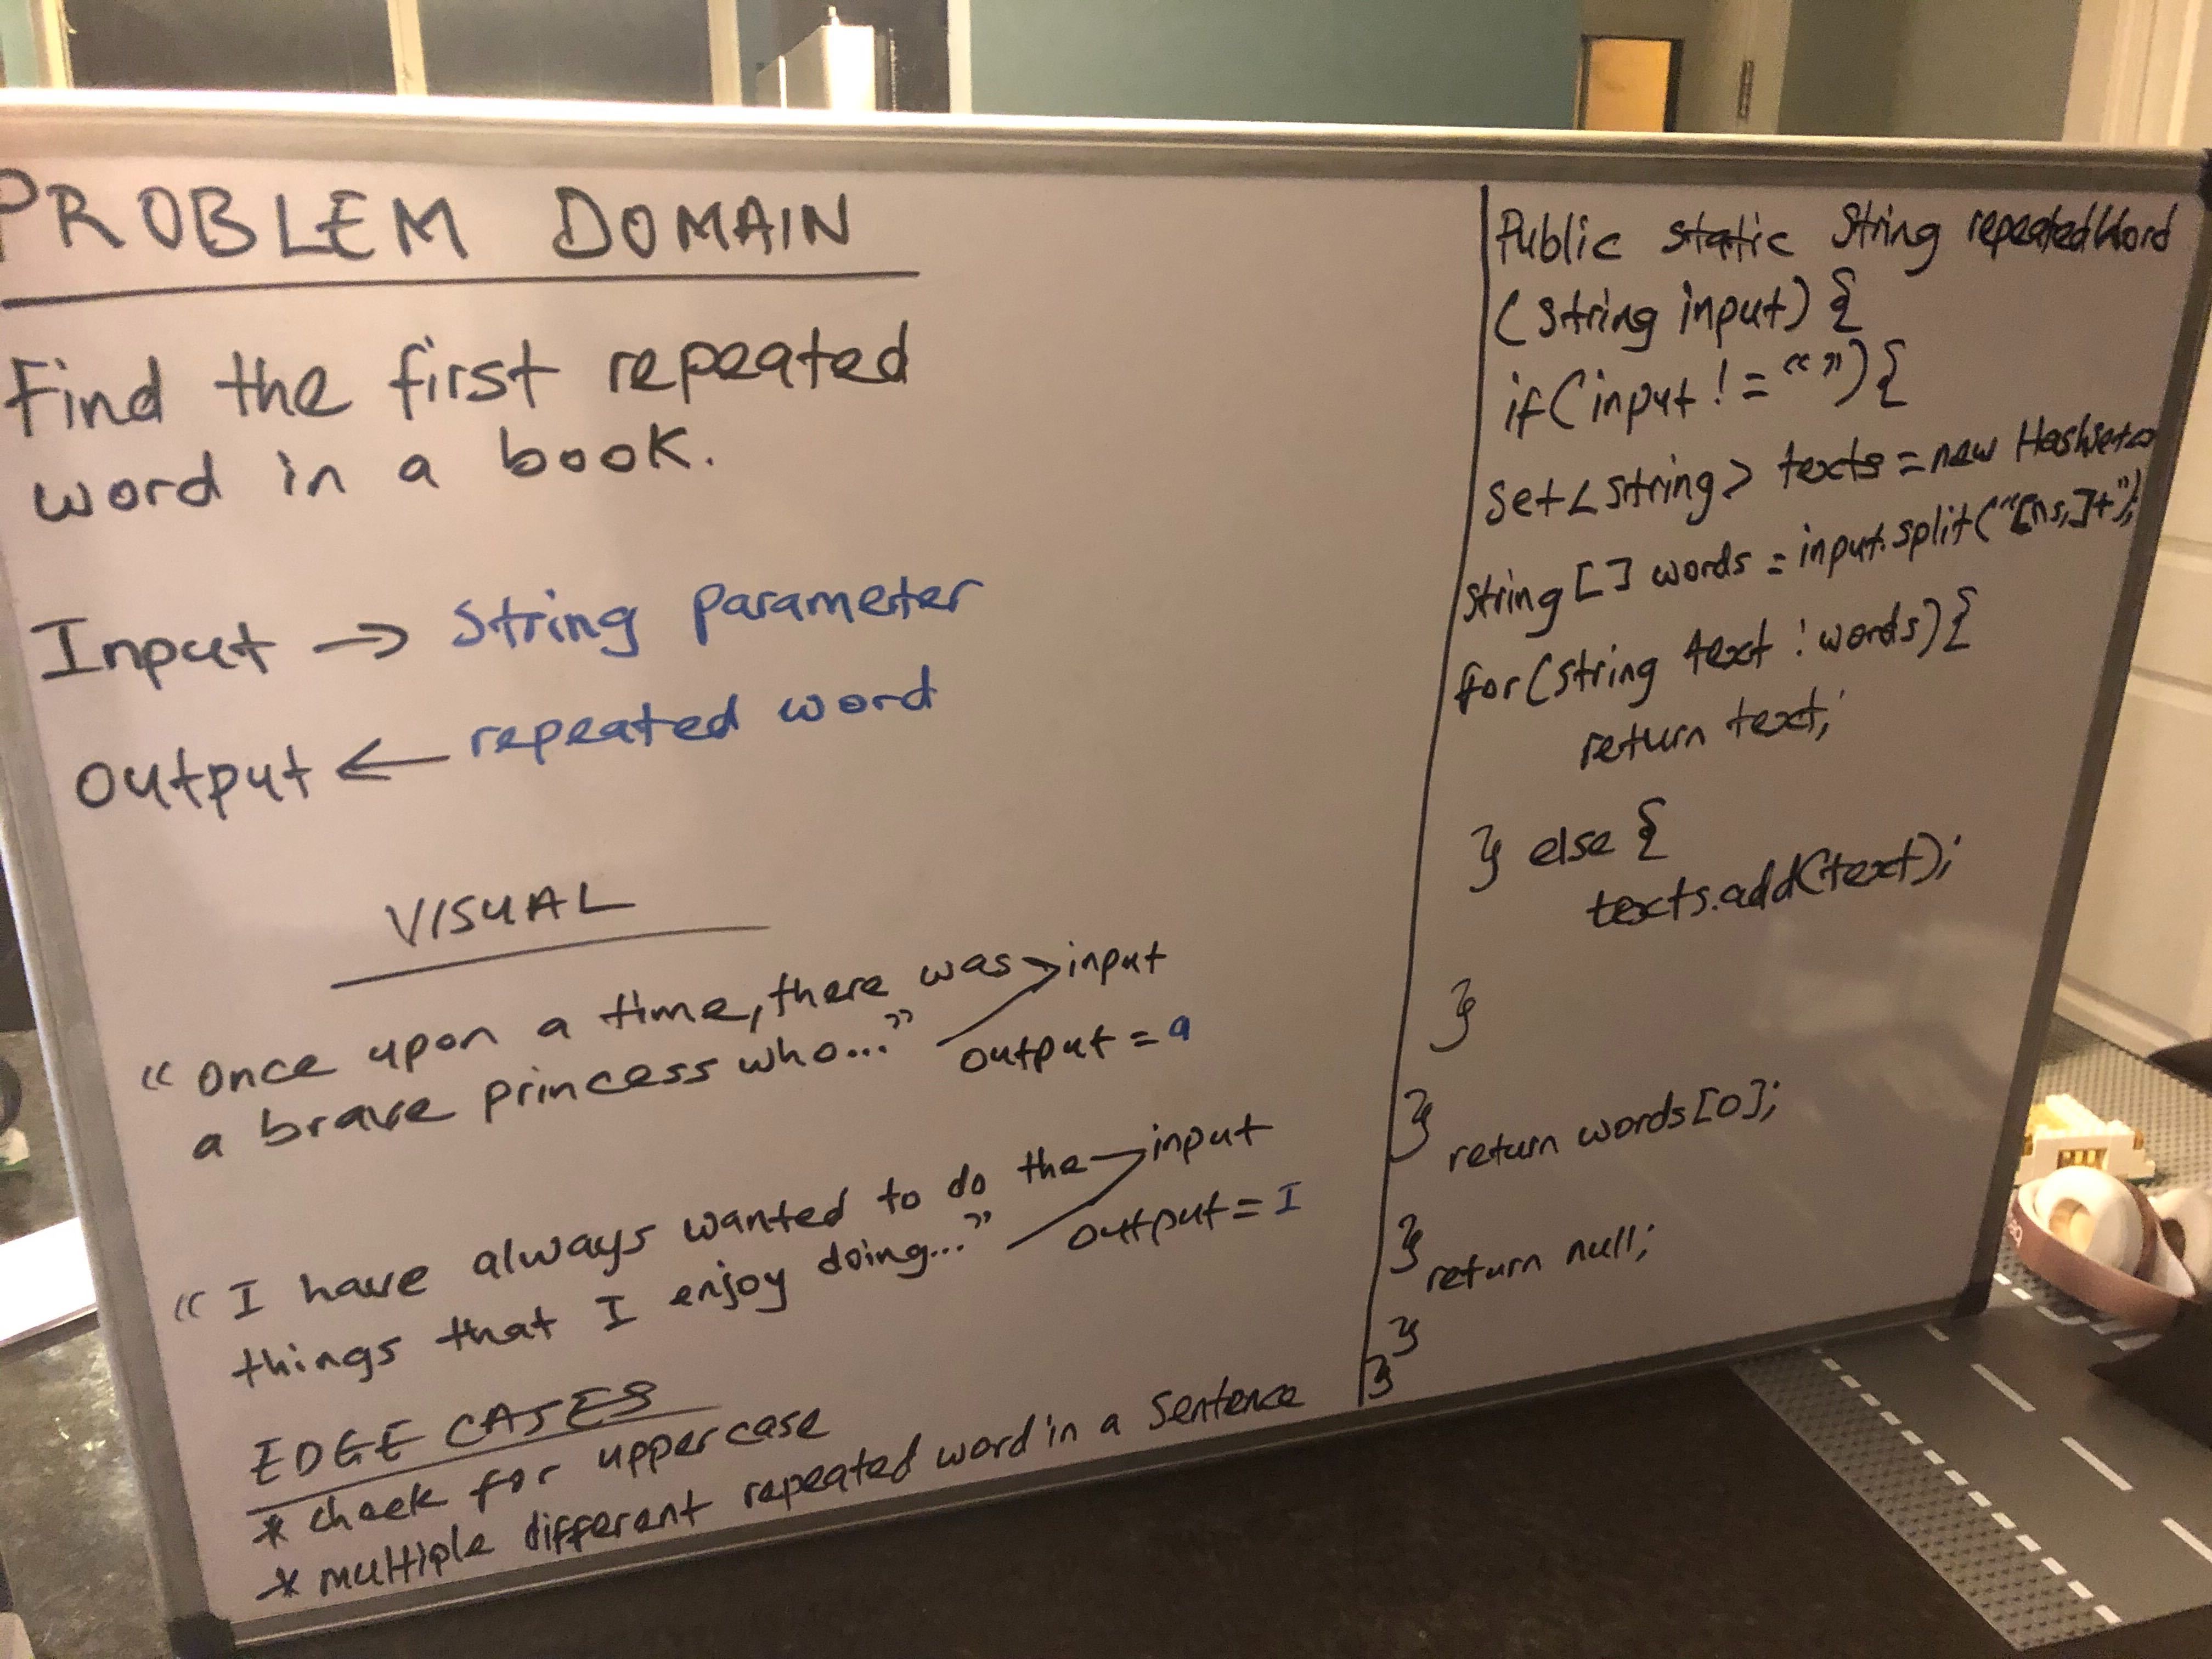 PROBLEM DOMAIN
Find the first repeated
word in a book.
Input → String parameter
output ← repeated word
VISUAL
"Once upon a time, there was > input
a brave princess who..." output = a
"I have always wanted to do the > input
things that I enjoy doing..." output = I
EDGE CASES
* check for uppercase
* multiple different repeated word in a sentence
Public static String repeatedWord
(String input) {
if(input != "") {
Set<String> texts = new HashSet<>
String[] words = input.split("[ns,]+");
for(String text : words) {
return text;
} else {
texts.add(text);
}
}
return words[0];
}
return null;
}
}